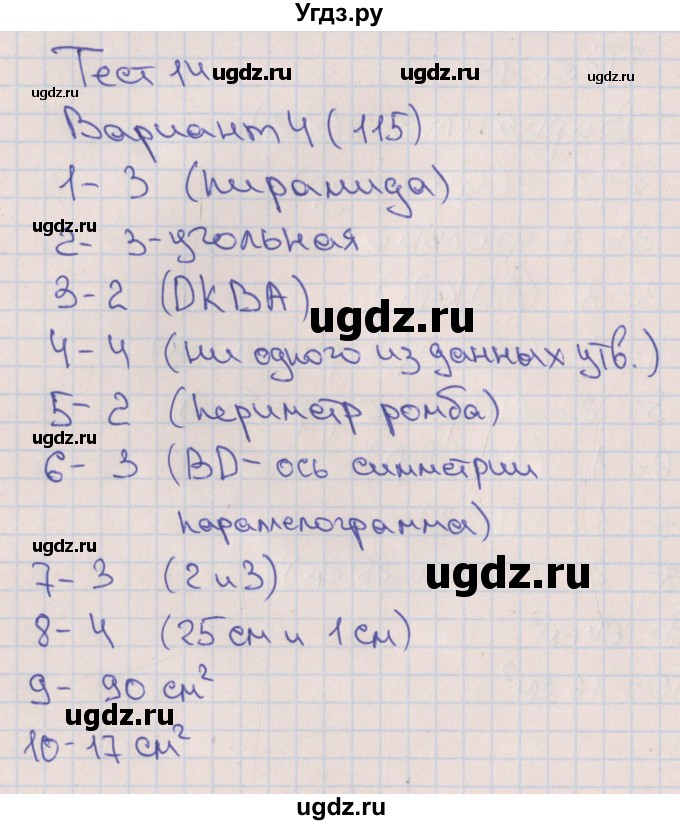 Угдз.ру
Тест 14
ugdz.ru
ugdz.ru
ugdz.ru
Вариант 4 (115)
1- 3 (пирамида)
ugdz.ru
2- 3-угольная
3-2 (DKBA)
ugdz.ru
4-4 (ни одного из данных утв.)
5-2 (периметр ромба)
ugdz.ru
6- 3 (BD-ось симметрии
парамелограмма)
ugdz.ru
7-3 (2 и 3)
ugdz.ru
8-4 (25 см и 1 см)
9- 90 см²
ugdz.ru
10-17 см²
ugdz.ru